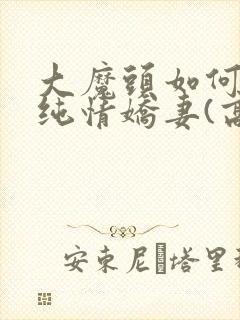 大魔頭如何
純情嬌妻(高
安東尼塔里